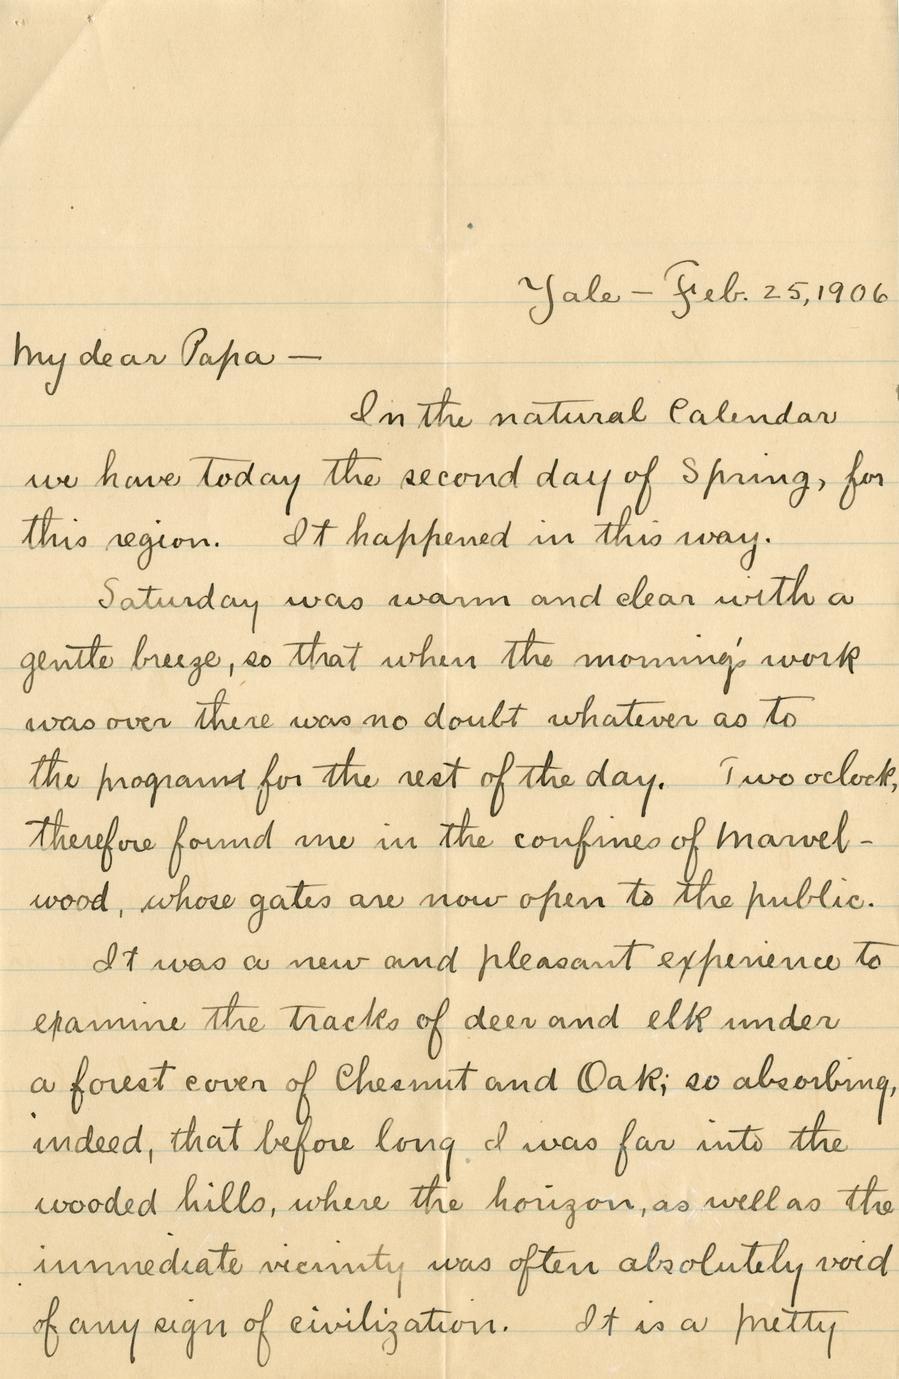 Yale – Feb. 25, 1906
My dear Papa —
In the natural Calendar
we have today the second day of Spring, for
this region. It happened in this way.
Saturday was warm and clear with a
gentle breeze, so that when the morning's work
was over there was no doubt whatever as to
the program for the rest of the day. Two oclock,
therefore found me in the confines of Marvel-
wood, whose gates are now open to the public.
It was a new and pleasant experience to
examine the tracks of deer and elk under
a forest cover of Chesnut and Oak; so absorbing,
indeed, that before long I was far into the
wooded hills, where the horizon, as well as the
immediate vicinity was often absolutely void
of any sign of civilization. It is a pretty